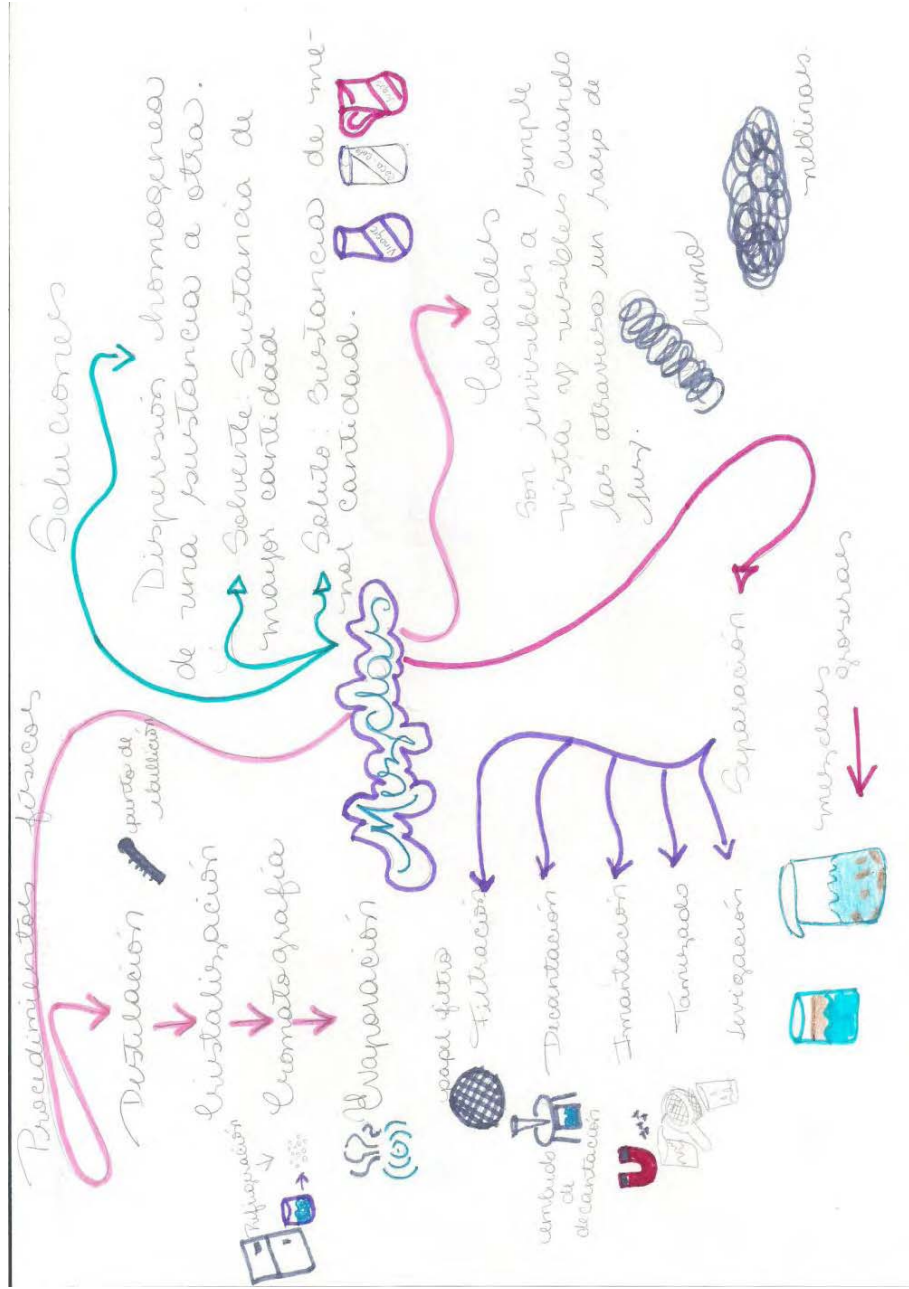 Procedimientos físicos
Destilación
punto de
ebullición
Cristalización
Refrigeración
Cromatografía
Evaporación
Soluciones
Dispersión homogenea
de una sustancia a otra.
Solvente: Sustancia de
mayor cantidad
Soluto: Sustancia de me-
nor cantidad.
Vinagre
Coca cola
Mezclas
Coloides
Son invisibles a simple
vista y visibles cuando
las atraviesa un rayo de
luz.
humo
neblinas.
Separación
papel filtro
Filtración
Decantación
embudo
de
decantación
Imantación
Tamizado
levigación
mezclas
groseras